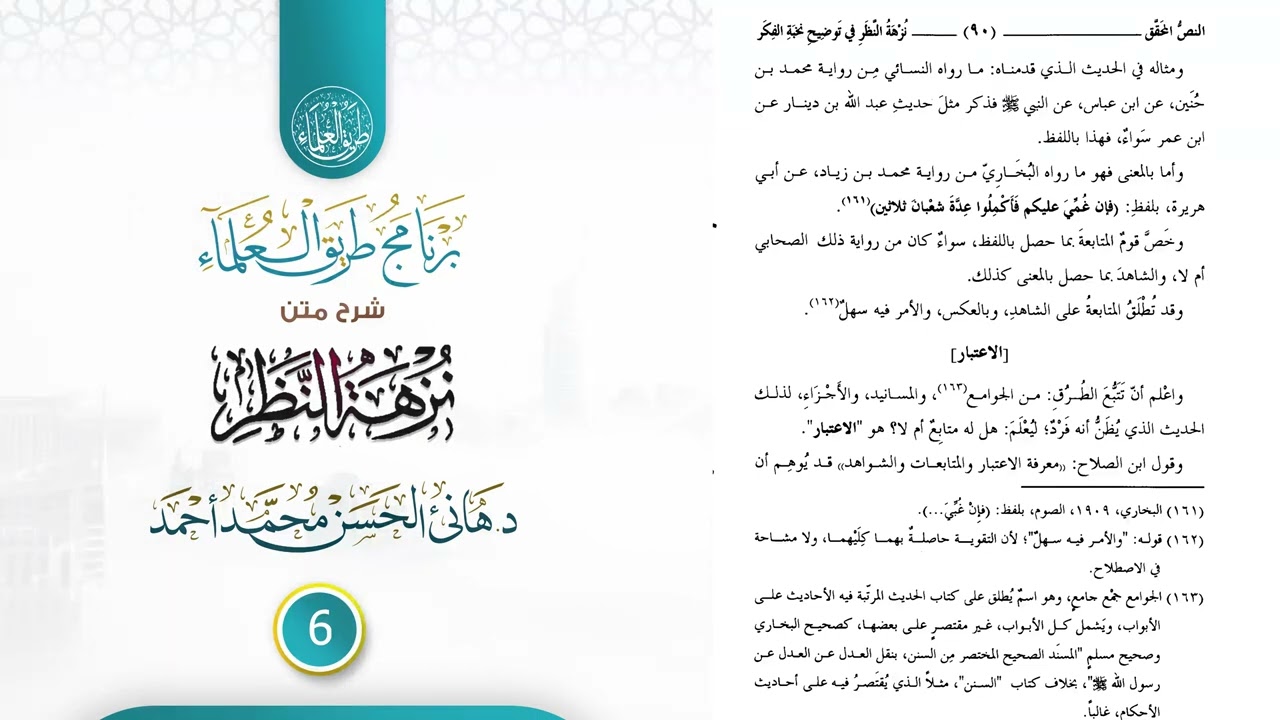 طريق العلماء
برنامج طريق العلماء
شرح متن
نزهة النظر
د. هانئ الحسن محمد أحمد
6
النصُّ المحَقَّق (٩٠) نُزْهَةُ النَّظَرِ في تَوضِيحِ نخبَةِ الفِكَر
ومثاله في الحديث الذي قدمناه: ما رواه النسائي مِن رواية محمد بن
حُنَين، عن ابن عباس، عن النبي ﷺ فذكر مثلَ حديثِ عبد الله بن دينار عن
ابن عمر سَواءٌ، فهذا باللفظ.
وأما بالمعنى فهو ما رواه البُخَاريّ من رواية محمد بن زياد، عن أبي
هريرة، بلفظِ: (فإن غُمِّيَ عليكم فَأَكْمِلُوا عِدَّةَ شعْبانَ ثلاثين)(١٦١).
وخَصَّ قومٌ المتابعةَ بما حصل باللفظ، سواءٌ كان من رواية ذلك الصحابي
أم لا، والشاهدَ بما حصل بالمعنى كذلك.
وقد تُطْلَقُ المتابعةُ على الشاهدِ، وبالعكس، والأمر فيه سهلٌ(١٦٢).
[الاعتبار]
واعْلم أنّ تَتَبُّعَ الطُرُقِ: من الجوامع(١٦٣)، والمسانيد، والأَجْزَاءِ، لذلك
الحديث الذي يُظَنُّ أنه فَرْدٌ؛ ليُعْلَمَ: هل له متابِعٌ أم لا؟ هو "الاعتبار".
وقول ابن الصلاح: «معرفة الاعتبار والمتابعات والشواهد» قد يُوهِم أن
(١٦١) البخاري، ١٩٠٩، الصوم، بلفظ: (فإنْ غُبِّيَ...).
(١٦٢) قوله: "والأمر فيه سهلٌ"؛ لأن التقوية حاصلةٌ بهما كِلَيْهما، ولا مشاحة
في الاصطلاح.
(١٦٣) الجوامع جمْع جامعٍ، وهو اسمٌ يُطلق على كتاب الحديث المرتّبة فيه الأحاديث على
الأبواب، ويَشمل كل الأبواب، غير مقتصرٍ على بعضها، كصحيح البخاري
وصحيح مسلمٍ "المسنَد الصحيح المختصر مِن السنن، بنقل العدل عن العدل عن
رسول الله ﷺ"، بخلاف كتاب "السنن"، مثلاً الذي يُقتَصرُ فيه على أحاديث
الأحكام، غالباً.